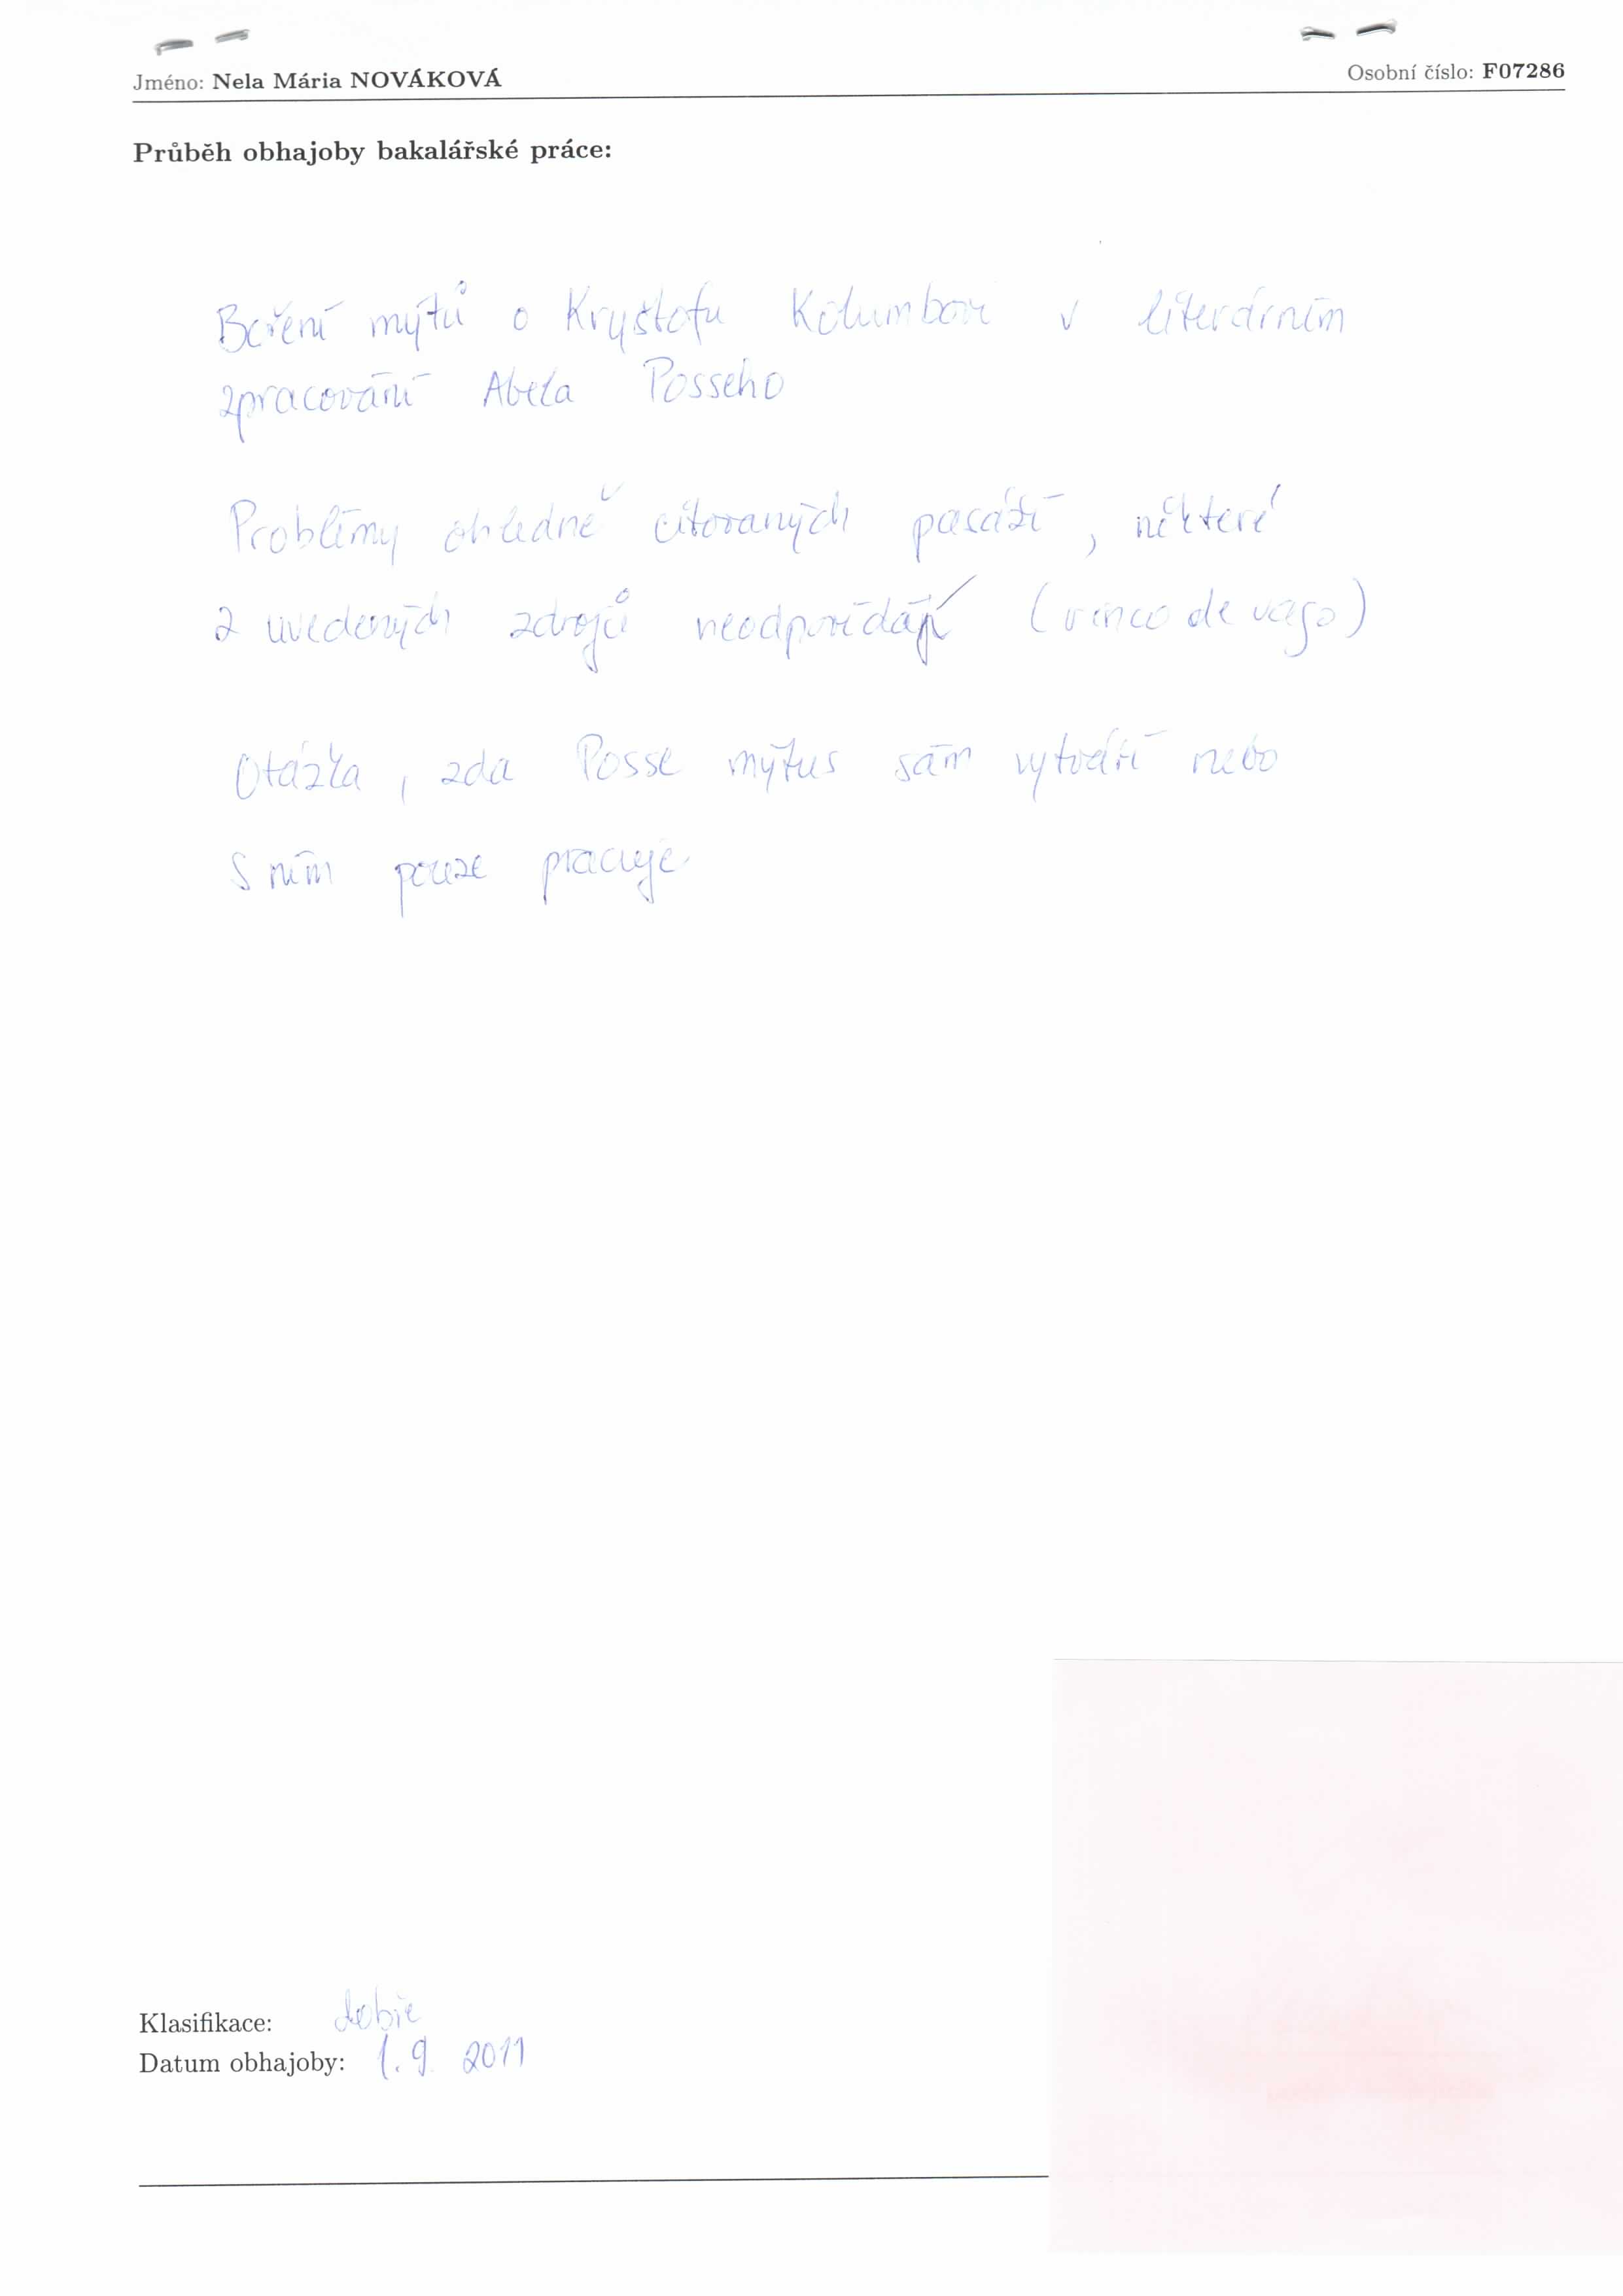 Jméno: Nela Mária NOVÁKOVÁ Osobní číslo: F07286
Průběh obhajoby bakalářské práce:
Boření mýtů o Kryštofu Kolumbovi v literárním
zpracování Abela Posseho
Problémy ohledně citovaných pasáží, některé
z uvedených zdrojů neodpovídají (rinco de vago)
Otázka, zda Posse mýtus sám vytváří nebo
s ním pouze pracuje
Klasifikace: dobře
Datum obhajoby: 1. 9. 2011